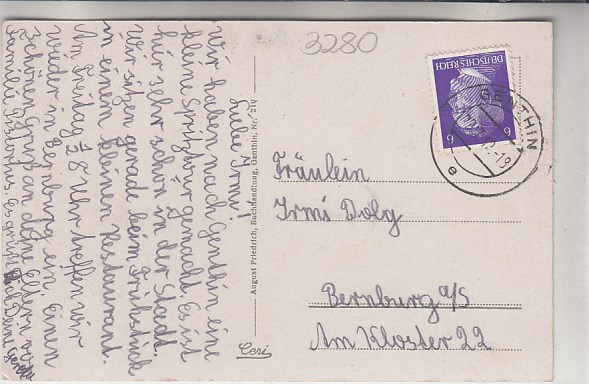 3280
Liebe Irmi!
Wir haben nach Genthin eine
kleine Spritztour gemacht. Es ist
hier sehr schön in der Stadt.
Wir sitzen gerade beim Frühstück
in einem kleinen Restaurant.
Am Freitag ½ 8 Uhr treffen wir
wieder in Bernburg ein. Einen
schönen Gruß an deine Eltern von
Familie Es grüßt Dich Deine
August Friedrich, Buchhandlung, Genthin, Nr. 210
Ceri
DEUTSCHES REICH
6 6
GENTHIN
e
Fräulein
Irmi Dolg
Bernburg a/S
Am Kloster 22